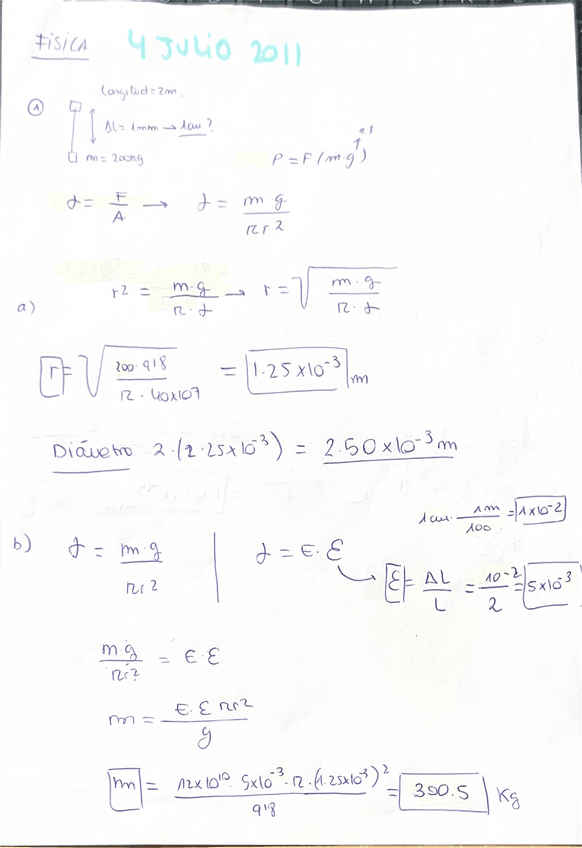 FÍSICA 4 JULIO 2011
Longitud=2m.
A
ΔL = 1mm → 1cm?
m = 200kg
9.8
P = F (m·g)
σ = F/A → σ = m g / πr²
a)
r² = m·g / π·σ → r = √(m·g / π·σ)
r = √(200·9'8 / π·40x10⁷) = 1.25x10⁻³ m
Diámetro 2·(2.25x10⁻³) = 2.50x10⁻³ m
1cm · 1m/100 = 1x10⁻²
b)
σ = m·g / πr² | σ = E·ε
ε = ΔL/L = 10⁻²/2 = 5x10⁻³
m·g / πr² = E·ε
m = E·ε πr² / g
m = 12x10¹⁰·5x10⁻³·π·(1.25x10⁻³)² / 9'8 = 300.5 Kg